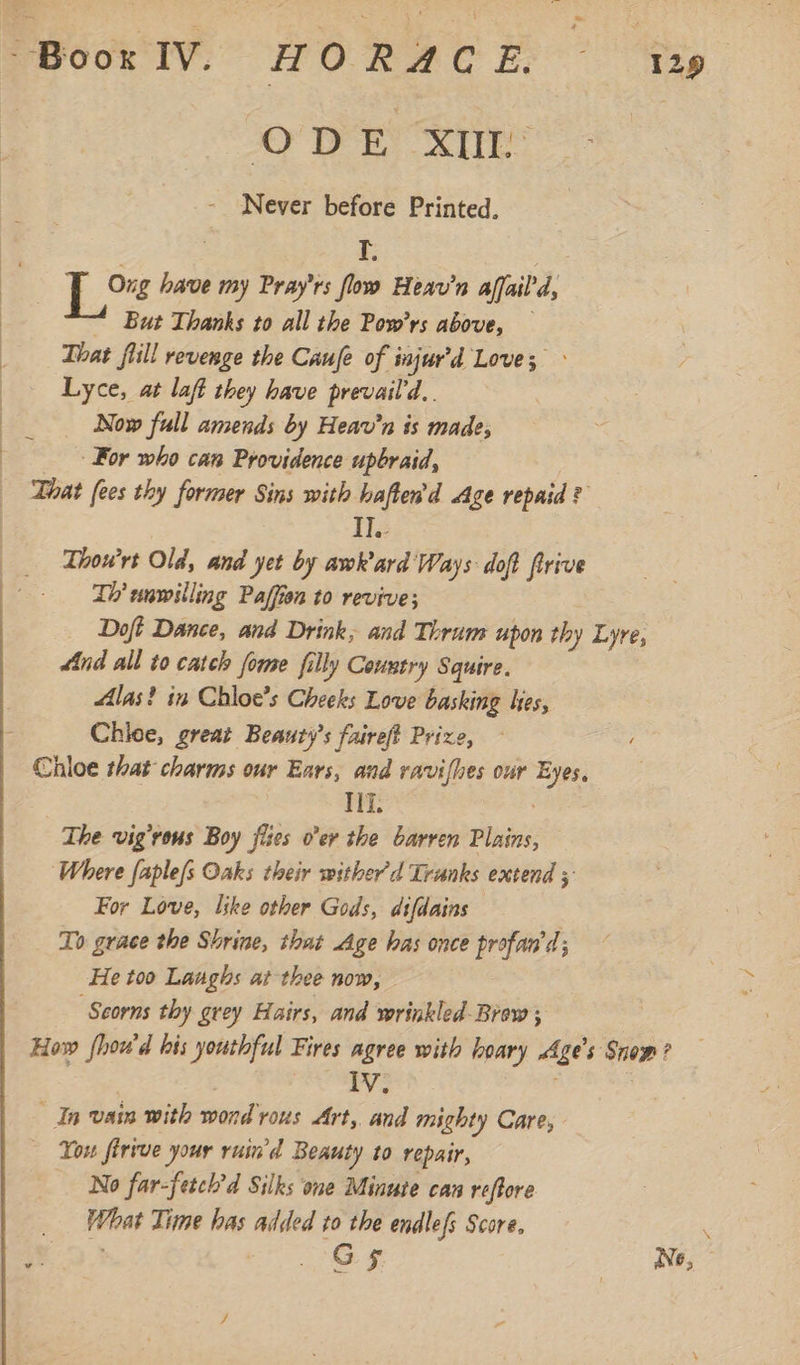 Book IV. HORACE. 129
ODE XIII.
Never before Printed.
I.
Long have my Pray'rs ſlow Heav'n aſſail'd,
But Thanks to all the Pow'rs above,
That ſtill revenge the Cauſe of injur'd Love;
Lyce, at laſt they have prevail'd.
Now full amends by Heav'n is made,
For who can Providence upbraid,
That ſees thy former Sins with haſten'd Age repaid?
II.
Thou'rt Old, and yet by awk'ard Ways doſt ſtrive
Th' unwilling Paſſion to revive;
Doſt Dance, and Drink, and Thrum upon thy Lyre,
And all to catch ſome ſilly Country Squire.
Alas! in Chloe's Cheeks Love basking lies,
Chloe, great Beauty's faireſt Prize,
Chloe that charms our Ears, and raviſhes our Eyes.
III.
The vig'rous Boy flies o'er the barren Plains,
Where ſapleſs Oaks their wither'd Trunks extend;
For Love, like other Gods, diſdains
To grace the Shrine, that Age has once profan'd;
He too Laughs at thee now,
Scorns thy grey Hairs, and wrinkled Brow;
How ſhou'd his youthful Fires agree with hoary Age's Snow?
IV.
In vain with wond'rous Art, and mighty Care,
You ſtrive your ruin'd Beauty to repair,
No far-fetch'd Silks one Minute can reſtore
What Time has added to the endleſs Score.
G 5 No,